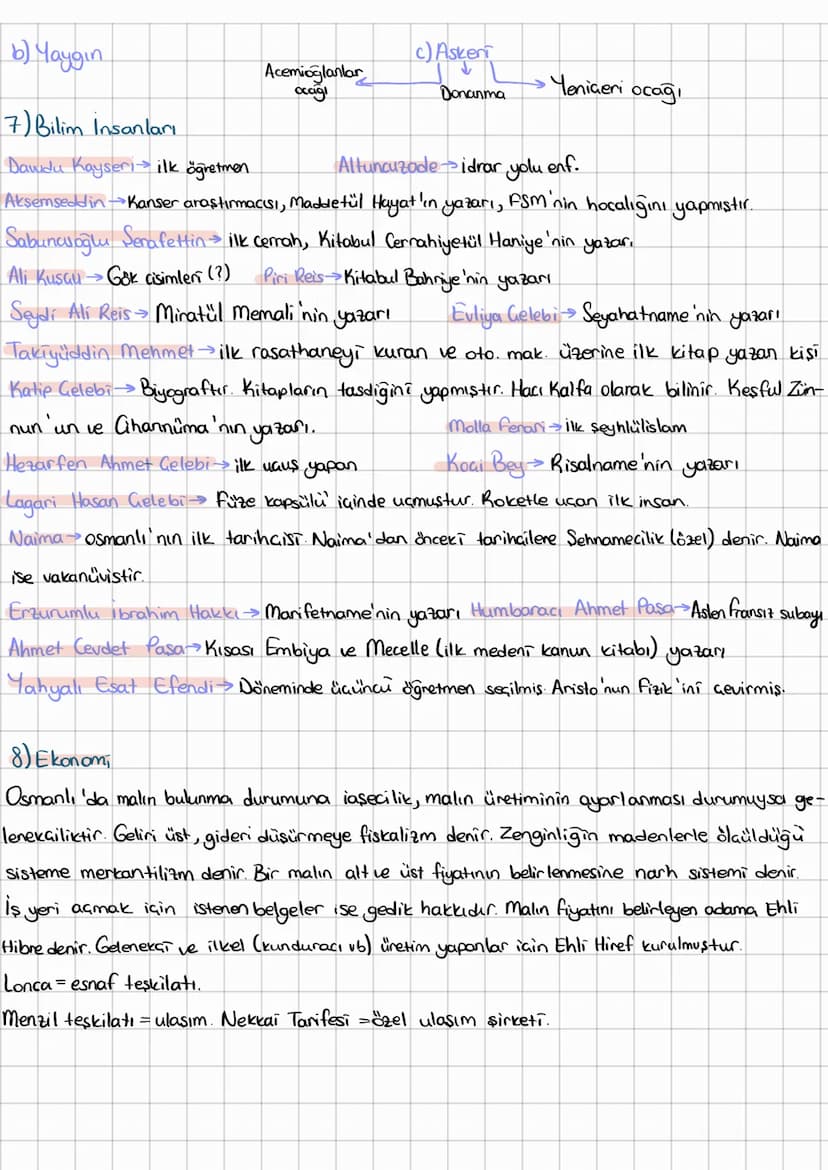 b) Yaygın
c) Askeri
Acemioğlanlar ocağı
Donanma
Yeniçeri ocağı
7) Bilim İnsanları
Davudu Kayseri → ilk öğretmen
Altuncuzade → idrar yolu enf.
Akşemseddin → Kanser araştırmacısı, Maddetül Hayat'ın yazarı, FSM'nin hocalığını yapmıştır.
Sabuncuoğlu Şerafettin → ilk cerrah, Kitabul Cerrahiyetül Haniye'nin yazarı
Ali Kuşçu → Gök cisimleri (?) Piri Reis → Kitabul Bahriye'nin yazarı
Seydi Ali Reis → Miratül Memali'nin yazarı
Evliya Çelebi → Seyahatname'nin yazarı
Takiyüddin Mehmet → ilk rasathaneyi kuran ve oto. mak. üzerine ilk kitap yazan kişi
Katip Çelebi → Biyograftır. Kitapların tasdiğini yapmıştır. Hacı Kalfa olarak bilinir. Keşful Zün-
nun'un ve Cihannüma'nın yazarı.
Molla Fenari → ilk şeyhlülislam
Hezarfen Ahmet Çelebi → ilk uçuş yapan
Koçi Bey → Risalname'nin yazarı
Lagari Hasan Çelebi → Füze kapsülü içinde uçmuştur. Roketle uçan ilk insan.
Naima → osmanlı'nın ilk tarihçisi. Naima'dan önceki tarihçilere Şehnamecilik (özel) denir. Naima
ise vakanüvistir.
Erzurumlu İbrahim Hakkı → Marifetname'nin yazarı Humbaracı Ahmet Paşa → Aslen fransız subayı
Ahmet Cevdet Paşa → Kısası Embiya ve Mecelle (ilk medeni kanun kitabı) yazarı
Yahyalı Esat Efendi → Döneminde üçüncü öğretmen seçilmiş. Aristo'nun Fizik'ini çevirmiş.
8) Ekonomi
Osmanlı'da malın bulunma durumuna iaşecilik, malın üretiminin ayarlanması durumuysa ge-
lenekçiliktir. Geliri üst, gideri düşürmeye fiskalizm denir. Zenginliğin madenlerle ölçüldüğü
sisteme merkantilizm denir. Bir malın alt ve üst fiyatının belirlenmesine narh sistemi denir.
İş yeri açmak için istenen belgeler ise gedik hakkıdır. Malın fiyatını belirleyen adama Ehli
Hibre denir. Gelenekçi ve ilkel (kunduracı vb) üretim yapanlar için Ehli Hiref kurulmuştur.
Lonca = esnaf teşkilatı.
Menzil teşkilatı = ulaşım. Nekkai Tarifesi = özel ulaşım şirketi.